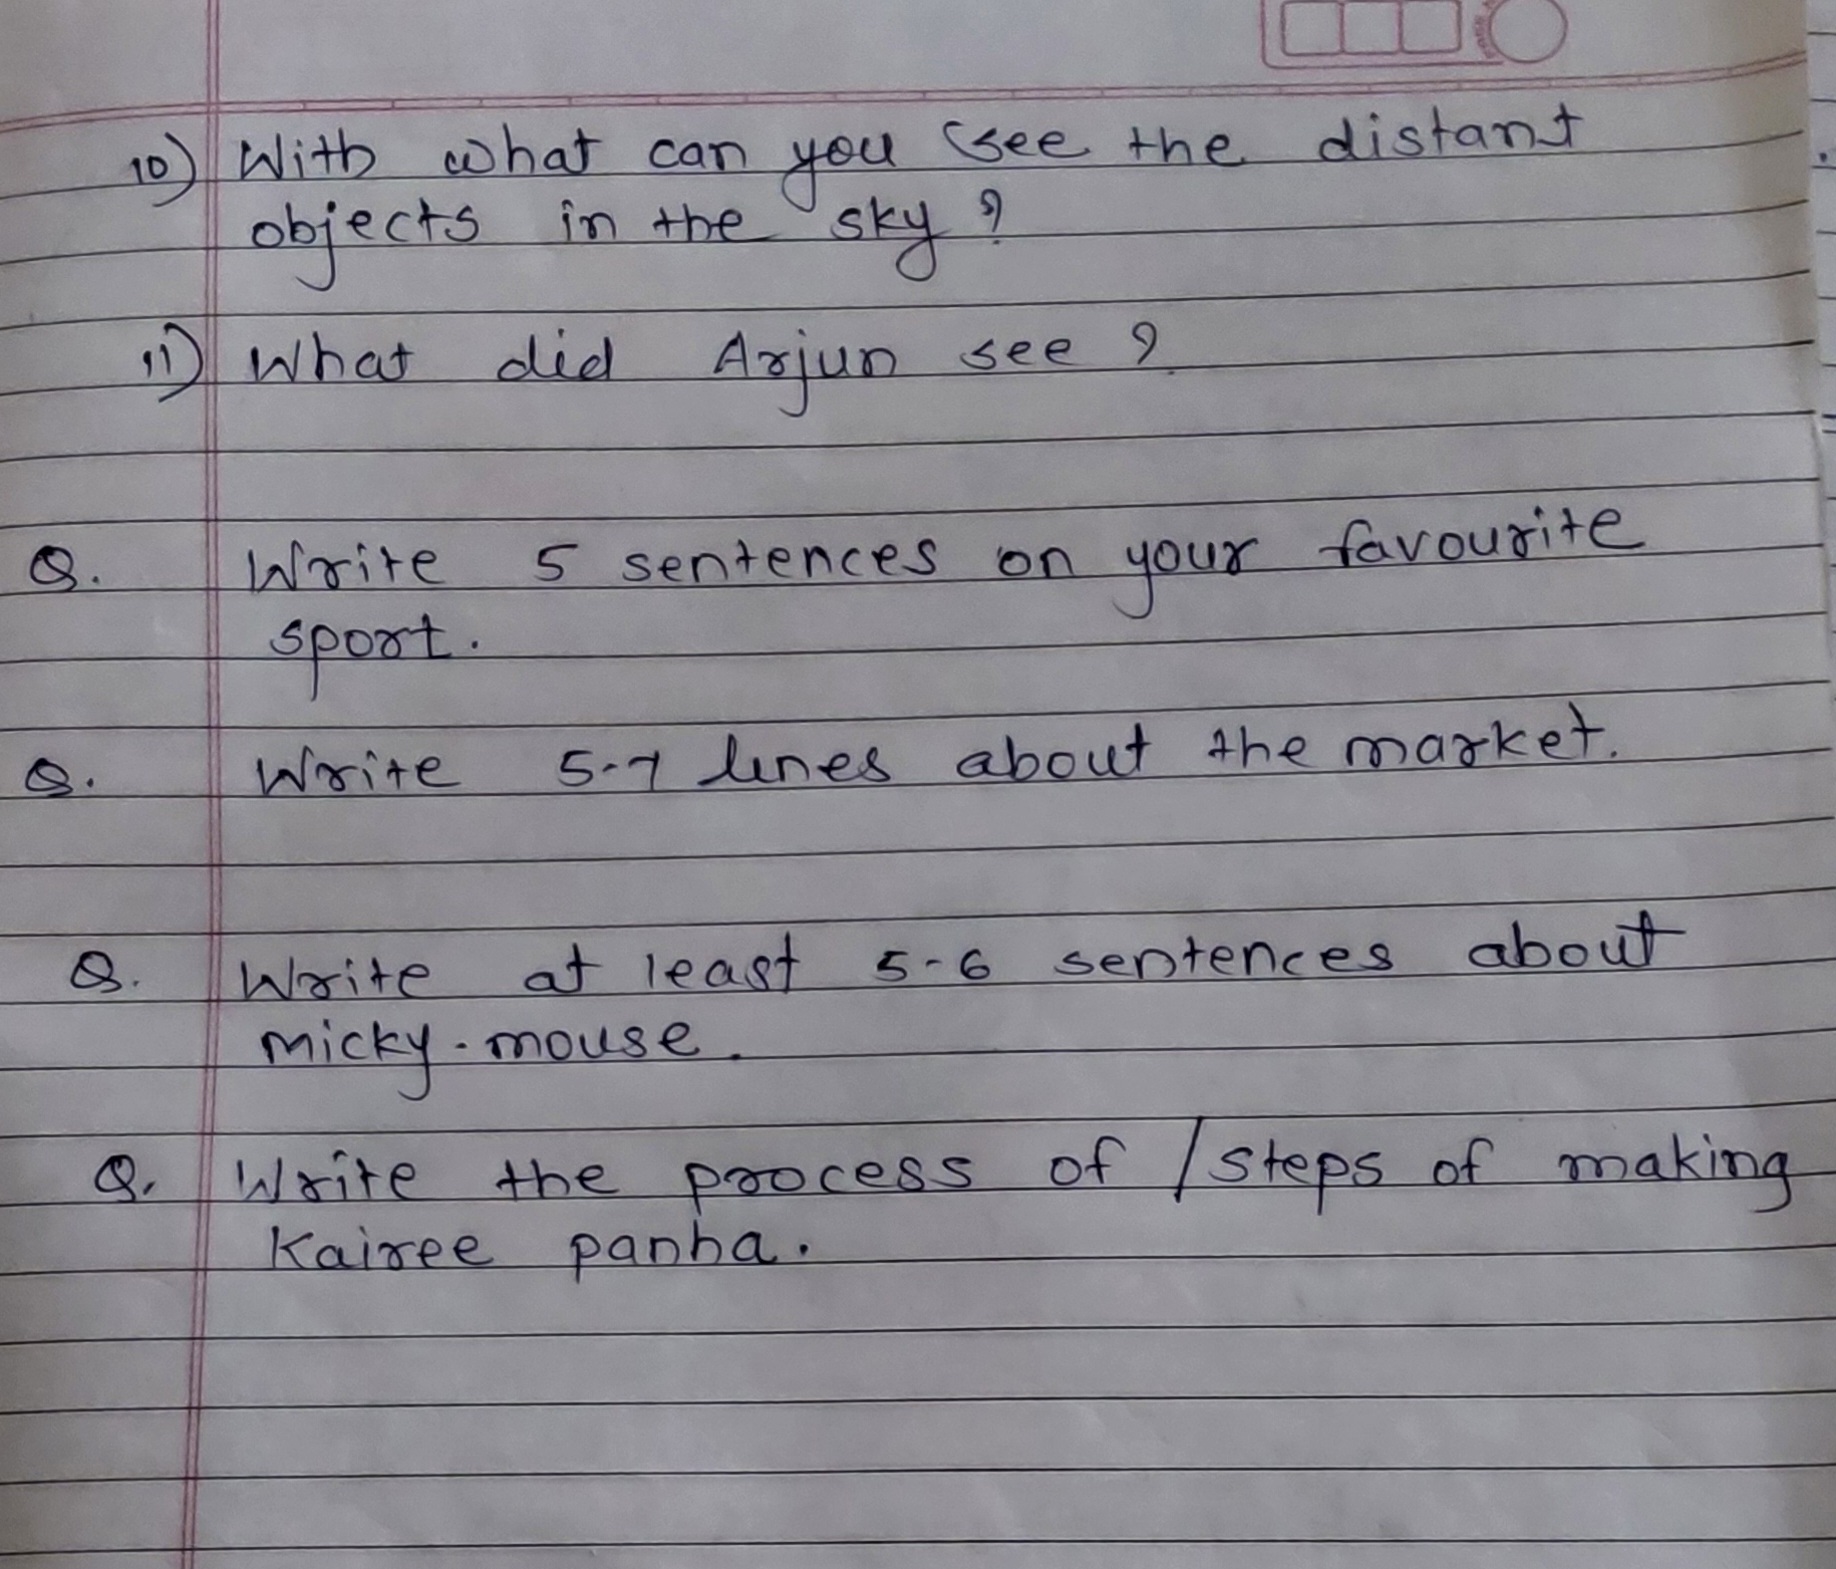 10) With what can you see the distant
objects in the sky ?
11) What did Arjun see ?
Q. Write 5 sentences on your favourite
sport.
Q. Write 5-7 lines about the market.
Q. Write at least 5-6 sentences about
micky-mouse.
Q. Write the process of / steps of making
Kairee panha.